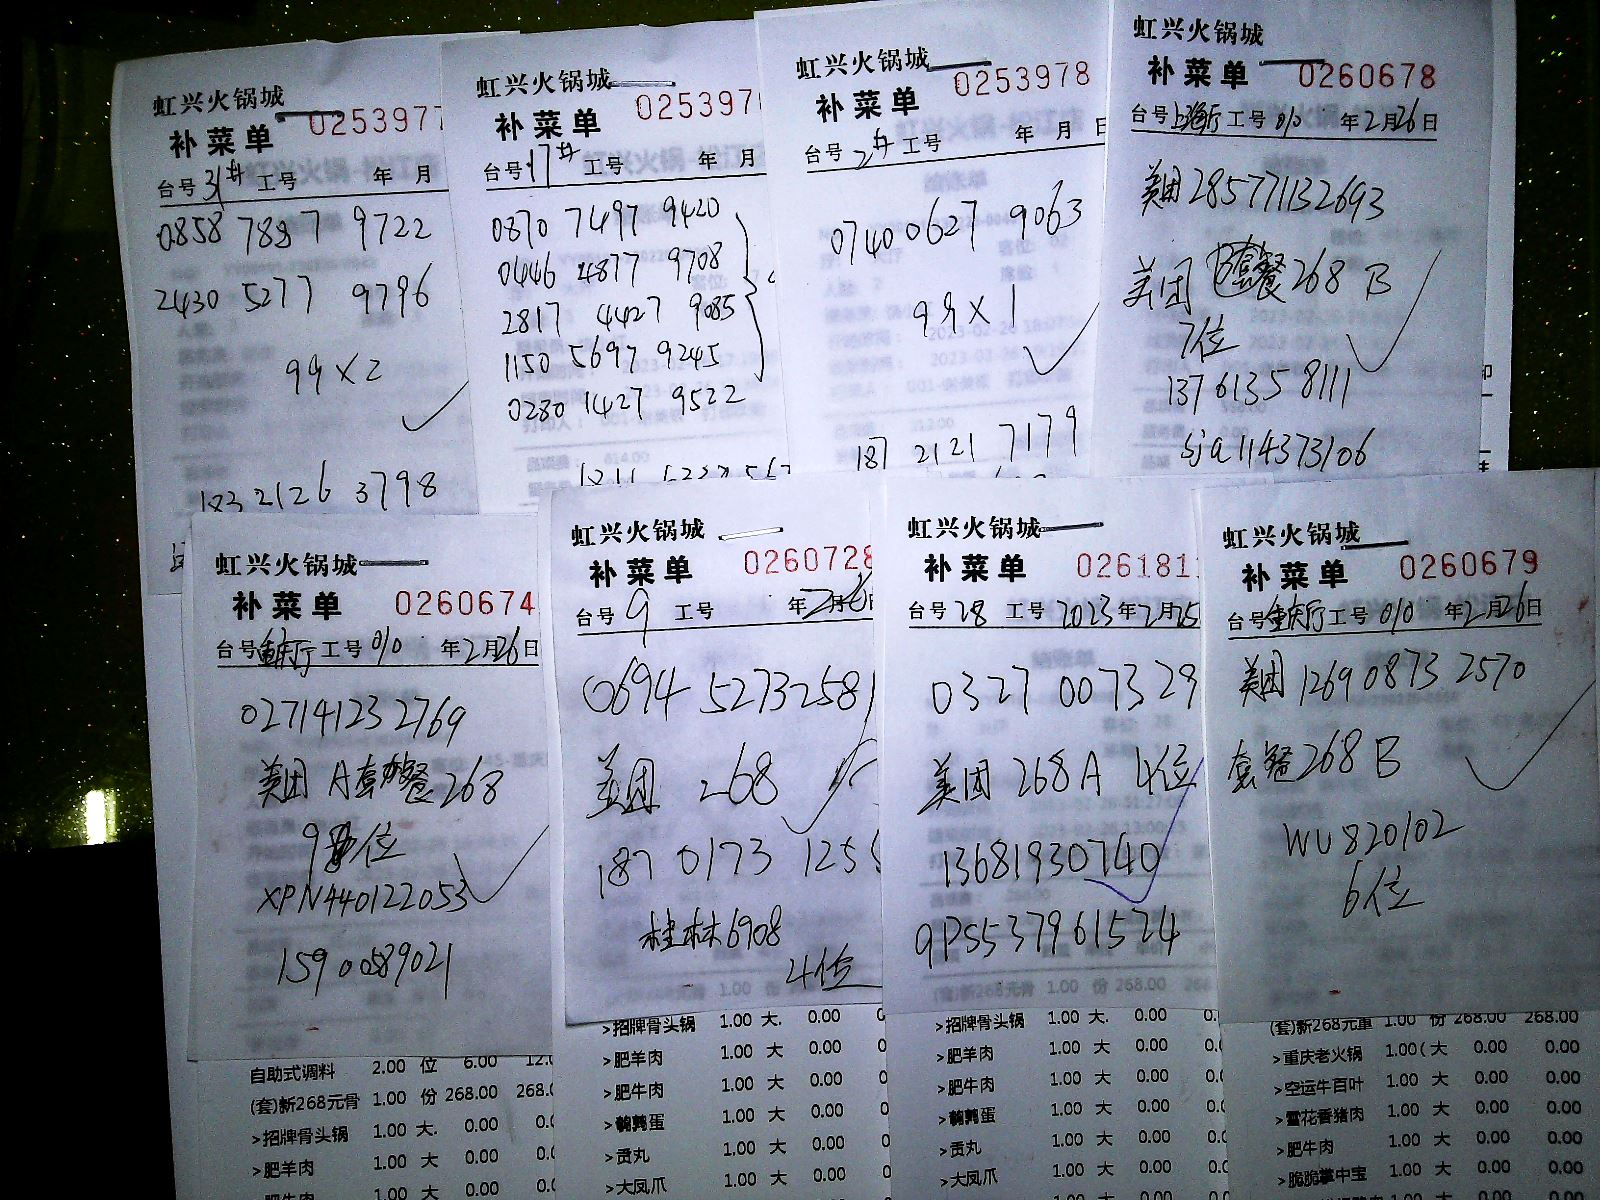 虹兴火锅城
补菜单 0253977
台号 31# 工号 年 月
0858 7887 9722
2430 5277 9796
99×2
183 2126 3798
虹兴火锅城
补菜单 025397
台号 17# 工号 年 月
0870 7497 9420
0446 4877 9708
2817 4427 9085
1150 5697 9245
0280 1427 9522
虹兴火锅城
补菜单 0253978
台号 2# 工号 年 月 日
0740 0627 9063
99×1
187 2121 7179
虹兴火锅城
补菜单 0260678
台号 上海厅 工号 010 年 2月 26日
美团 285771132693
美团 B套餐 268 B
7位
13761358111
sja114373106
虹兴火锅城
补菜单 0260674
台号 重庆厅 工号 010 年 2月 26日
027141232769
美团 A套餐 268
9位
XPN440122053
15900589021
自助式调料 2.00 位 6.00 12.0
(套)新268元骨 1.00 份 268.00 268.0
>招牌骨头锅 1.00 大. 0.00 0.0
>肥羊肉 1.00 大 0.00 0.0
>肥牛肉 1.00 大 0.00 0.0
虹兴火锅城
补菜单 0260728
台号 9 工号 年 2月 6日
0694 52732581
美团 268
187 0173 125
桂林6908
4位
>招牌骨头锅 1.00 大. 0.00
>肥羊肉 1.00 大 0.00
>肥牛肉 1.00 大 0.00
>鹌鹑蛋 1.00 大 0.00
>贡丸 1.00 大 0.00
>大凤爪 1.00 大 0.00
虹兴火锅城
补菜单 026181
台号 28 工号 2023年 2月 25
0327 0073 29
美团 268A 4位
13681930740
9PS537961524
(套)新268元骨 1.00 份 268.00 268
>招牌骨头锅 1.00 大. 0.00 0.
>肥羊肉 1.00 大 0.00 0.
>肥牛肉 1.00 大 0.00 0.
>鹌鹑蛋 1.00 大 0.00 0.
>贡丸 1.00 大 0.00 0.
>大凤爪 1.00 大 0.00 0.
虹兴火锅城
补菜单 0260679
台号 重庆厅 工号 010 年 2月 26日
美团 1269 0873 2570
套餐 268 B
WU820102
6位
(套)新268元重 1.00 份 268.00 268.00
>重庆老火锅 1.00( 大 0.00 0.00
>空运牛百叶 1.00 大 0.00 0.00
>雪花香猪肉 1.00 大 0.00 0.00
>肥牛肉 1.00 大 0.00 0.00
>脆脆掌中宝 1.00 大 0.00 0.00